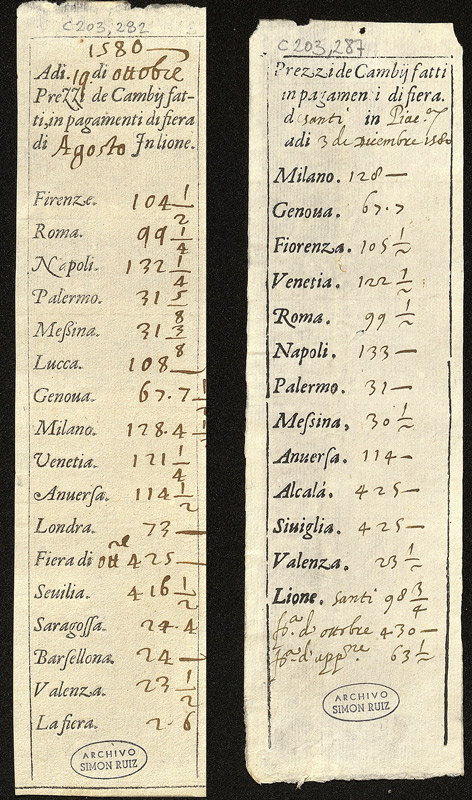 C 203, 282
1580
Adi. 19 di ottobre
Prezzi de Cambij fat-
ti, in pagamenti di fiera
di Agosto In lione.
Firenze. 104 1/2
Roma. 99 1/4
Napoli. 132 1/4
Palermo. 31 5/8
Meßina. 31 3/8
Lucca. 108
Genoua. 67.7
Milano. 128.4
Venetia. 121 1/4
Anuerſa. 114 1/2
Londra. 73
Fiera di ottre 425
Seuilia. 416 1/2
Saragoſſa. 24.4
Barſellona. 24
Valenza. 23 1/2
La fiera. 2.6
ARCHIVO
SIMON RUIZ
C 203, 287
Prezzi de Cambij fatti
in pagamen i di fiera.
d santi in
adi 3 de Diciembre 1580
Milano. 128
Genoua. 67.7
Fiorenza. 105 1/2
Venetia. 122 1/2
Roma. 99 1/2
Napoli. 133
Palermo. 31
Meſsina. 30 1/2
Anuerſa. 114
Alcalá. 425
Siuiglia. 425
Valenza. 23 1/2
Lione. santi 98 3/4
d'ottobre 430
63 1/2
ARCHIVO
SIMON RUIZ